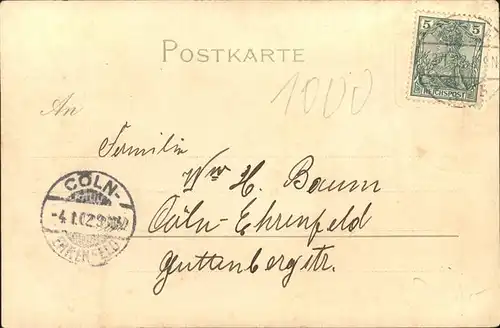 POSTKARTE
5 5
REICHSPOST
1000
An
Familie
Ww H. Baum
Cöln-Ehrenfeld
Guttenbergstr.
CÖLN-
-4.1.02.
EHRENFELD